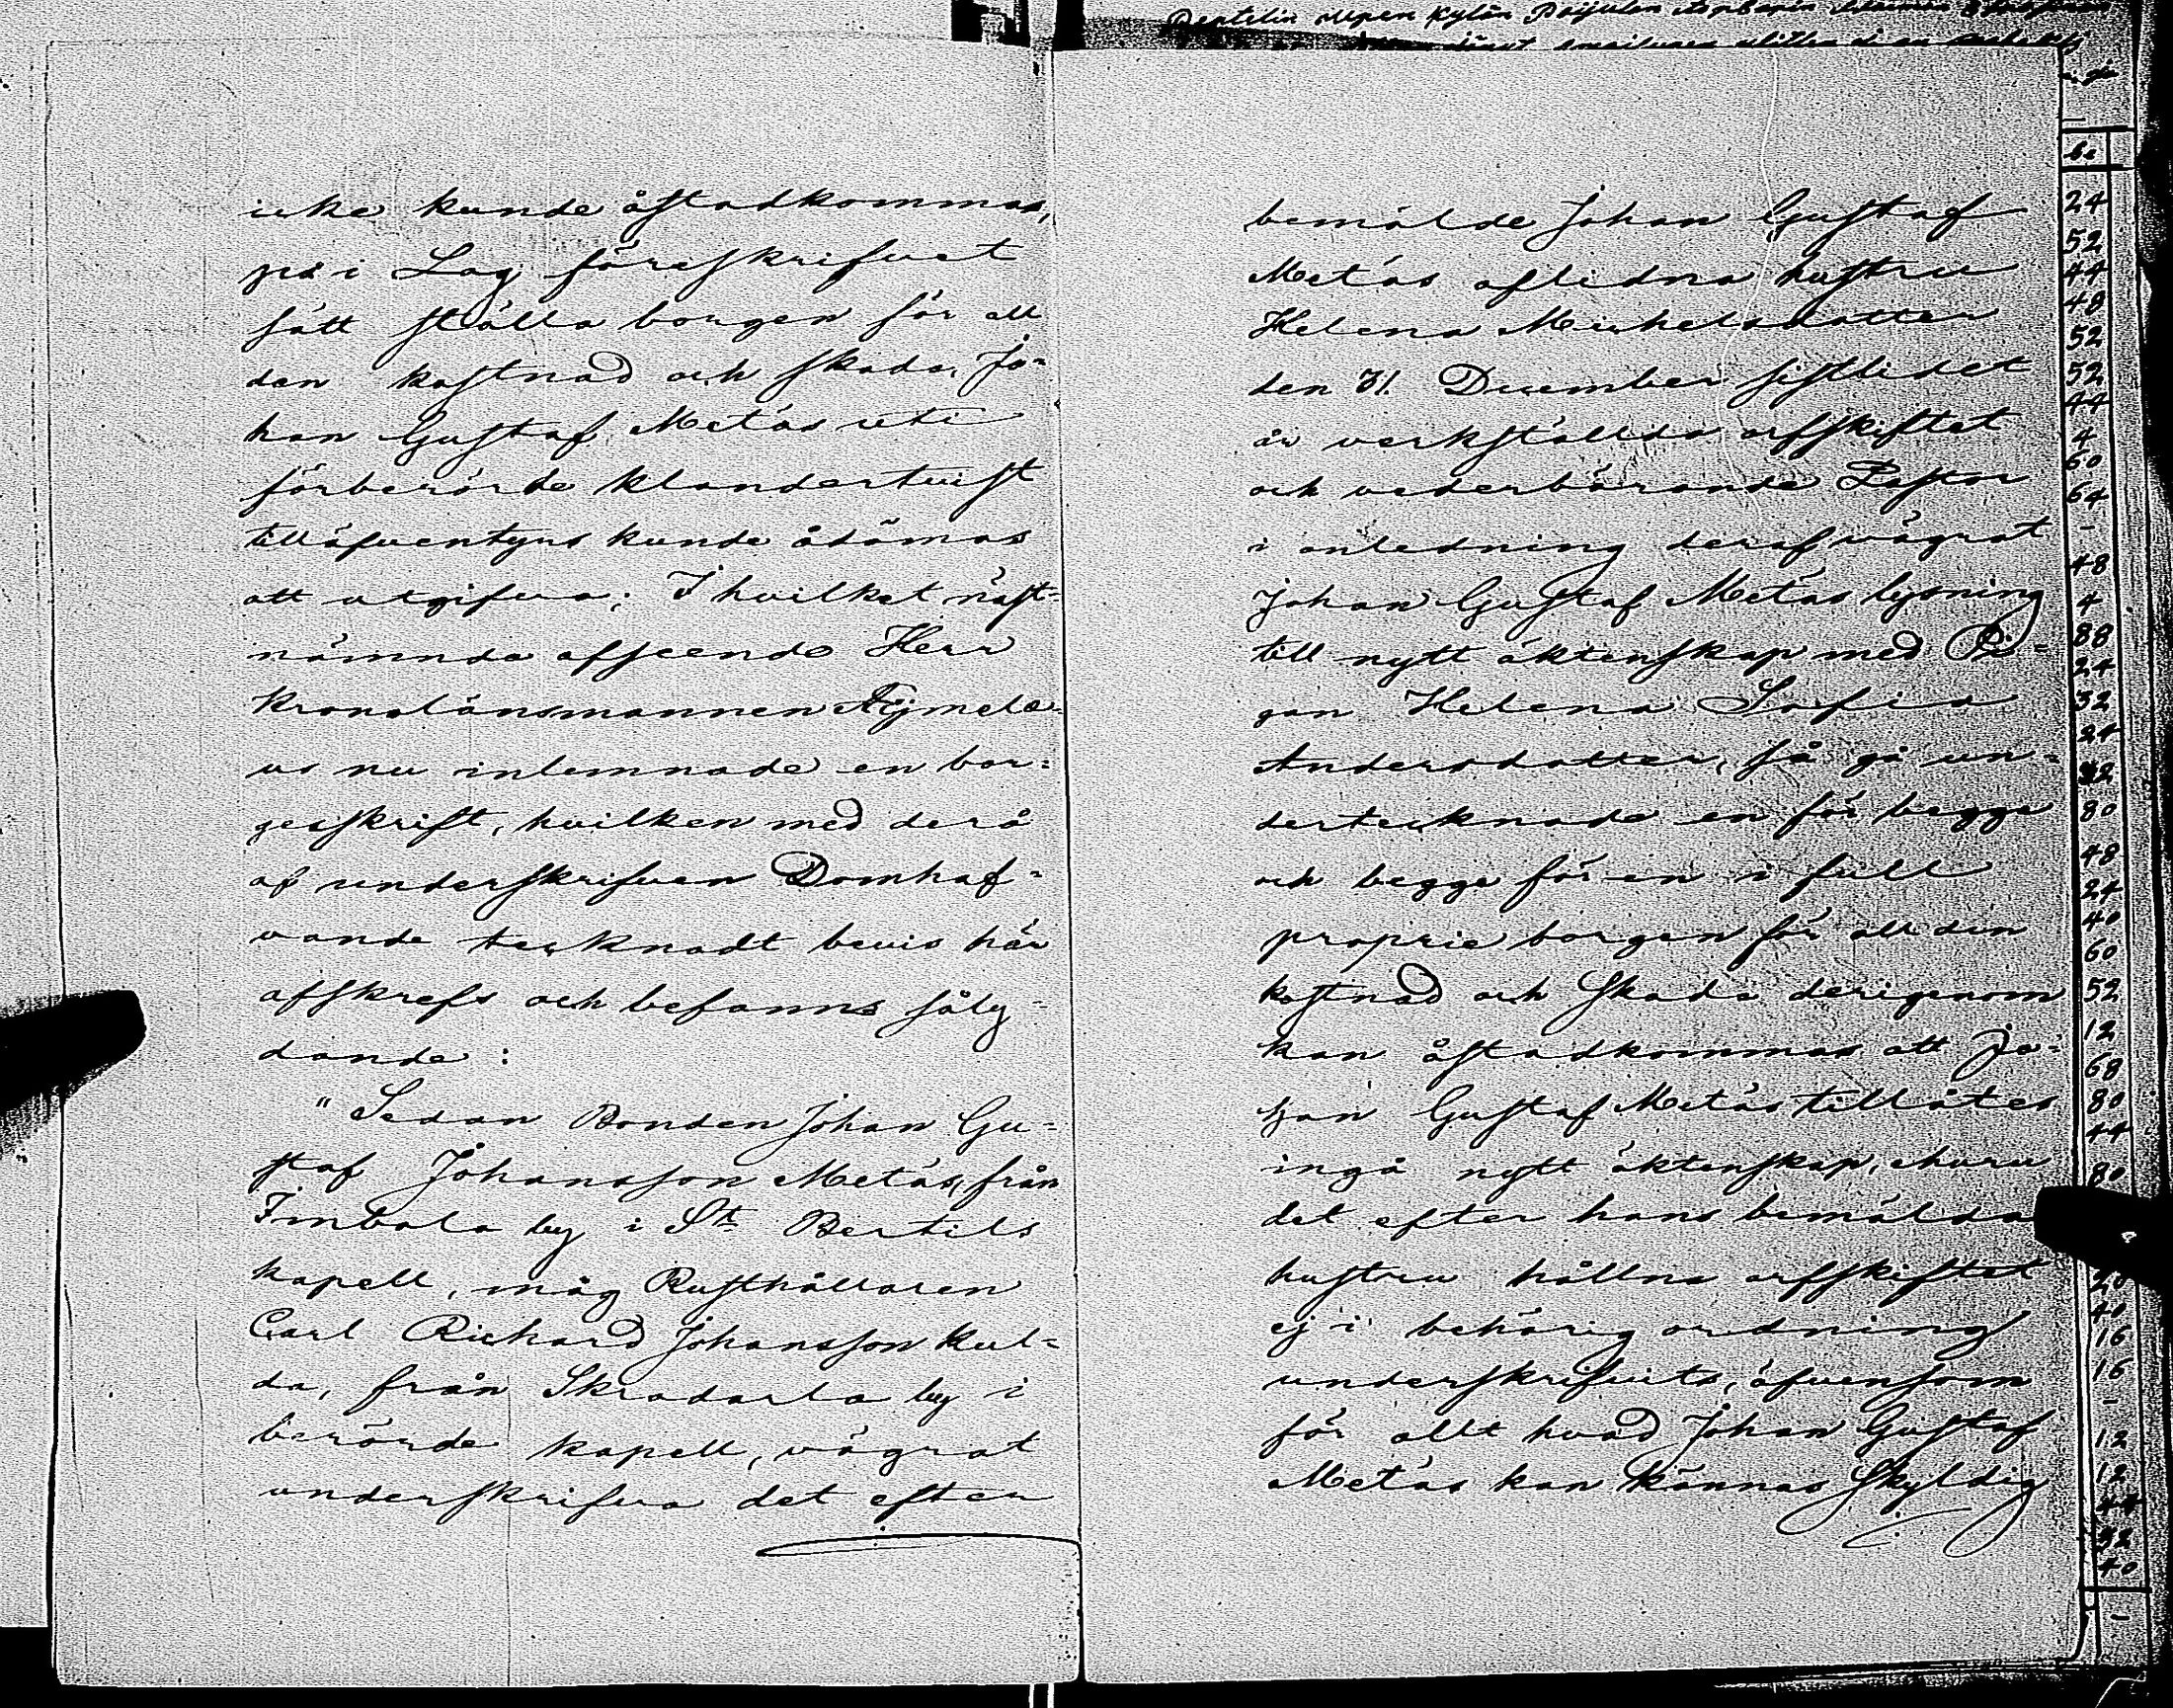 icke kunde åstadkommas,
på i Lag föreskrifvet
sätt ställa borgen för all
den kostnad och skada, Jo-
han Gustaf Metäs uti
förberörde klandertvist
tilläfventyrs kunde ådömas
att utgifva; I hvilket näst-
nämnda afseende Herr
Kronolänsmannen
us nu inlemnade en bor-
gesskrift, hvilken med derå
af underskrifven Domhaf-
vande tecknadt bevis här
afskrefs och befanns såly-
dande:
"Sedan Bonden Johan Gu-
staf Johansson Metäs, från
Inbala by i St. Bertils
kapell, måg Rusthållaren
Carl Richard Johansson Kul-
da, från Skradarla by i
berörde kapell, vägrat
underskrifva det efter
bemälde Johan Gustaf
Metäs aflidna hustru
Helena Michelsdotter
den 31 December sistlidet
år verkställda arfskiftet
och vederbörande Pastor
i anledning deraf vägrat
Johan Gustaf Metäs lysning
till nytt äktenskap med Pi-
gan Helena Sofia
Andersdotter, så gå un-
dertecknade en för begge
och begge för en i full
proprie borgen för all den
kostnad och skada derigenom
kan åstadkommas att Jo-
han Gustaf Metäs tillåtes
ingå nytt äktenskap, ehuru
det efter hans bemälda
hustru hållna arfskiftet
ej i behörig ordning
underskrifvits, äfvensom
för allt hvad Johan Gustaf
Metäs kan kännas skyldig
24
52
44
48
52
52
44
4
60
64
-
48
4
88
24
32
24
32
80
48
24
40
60
52
12
68
80
44
80
16
16
-
12
12
44
32
40